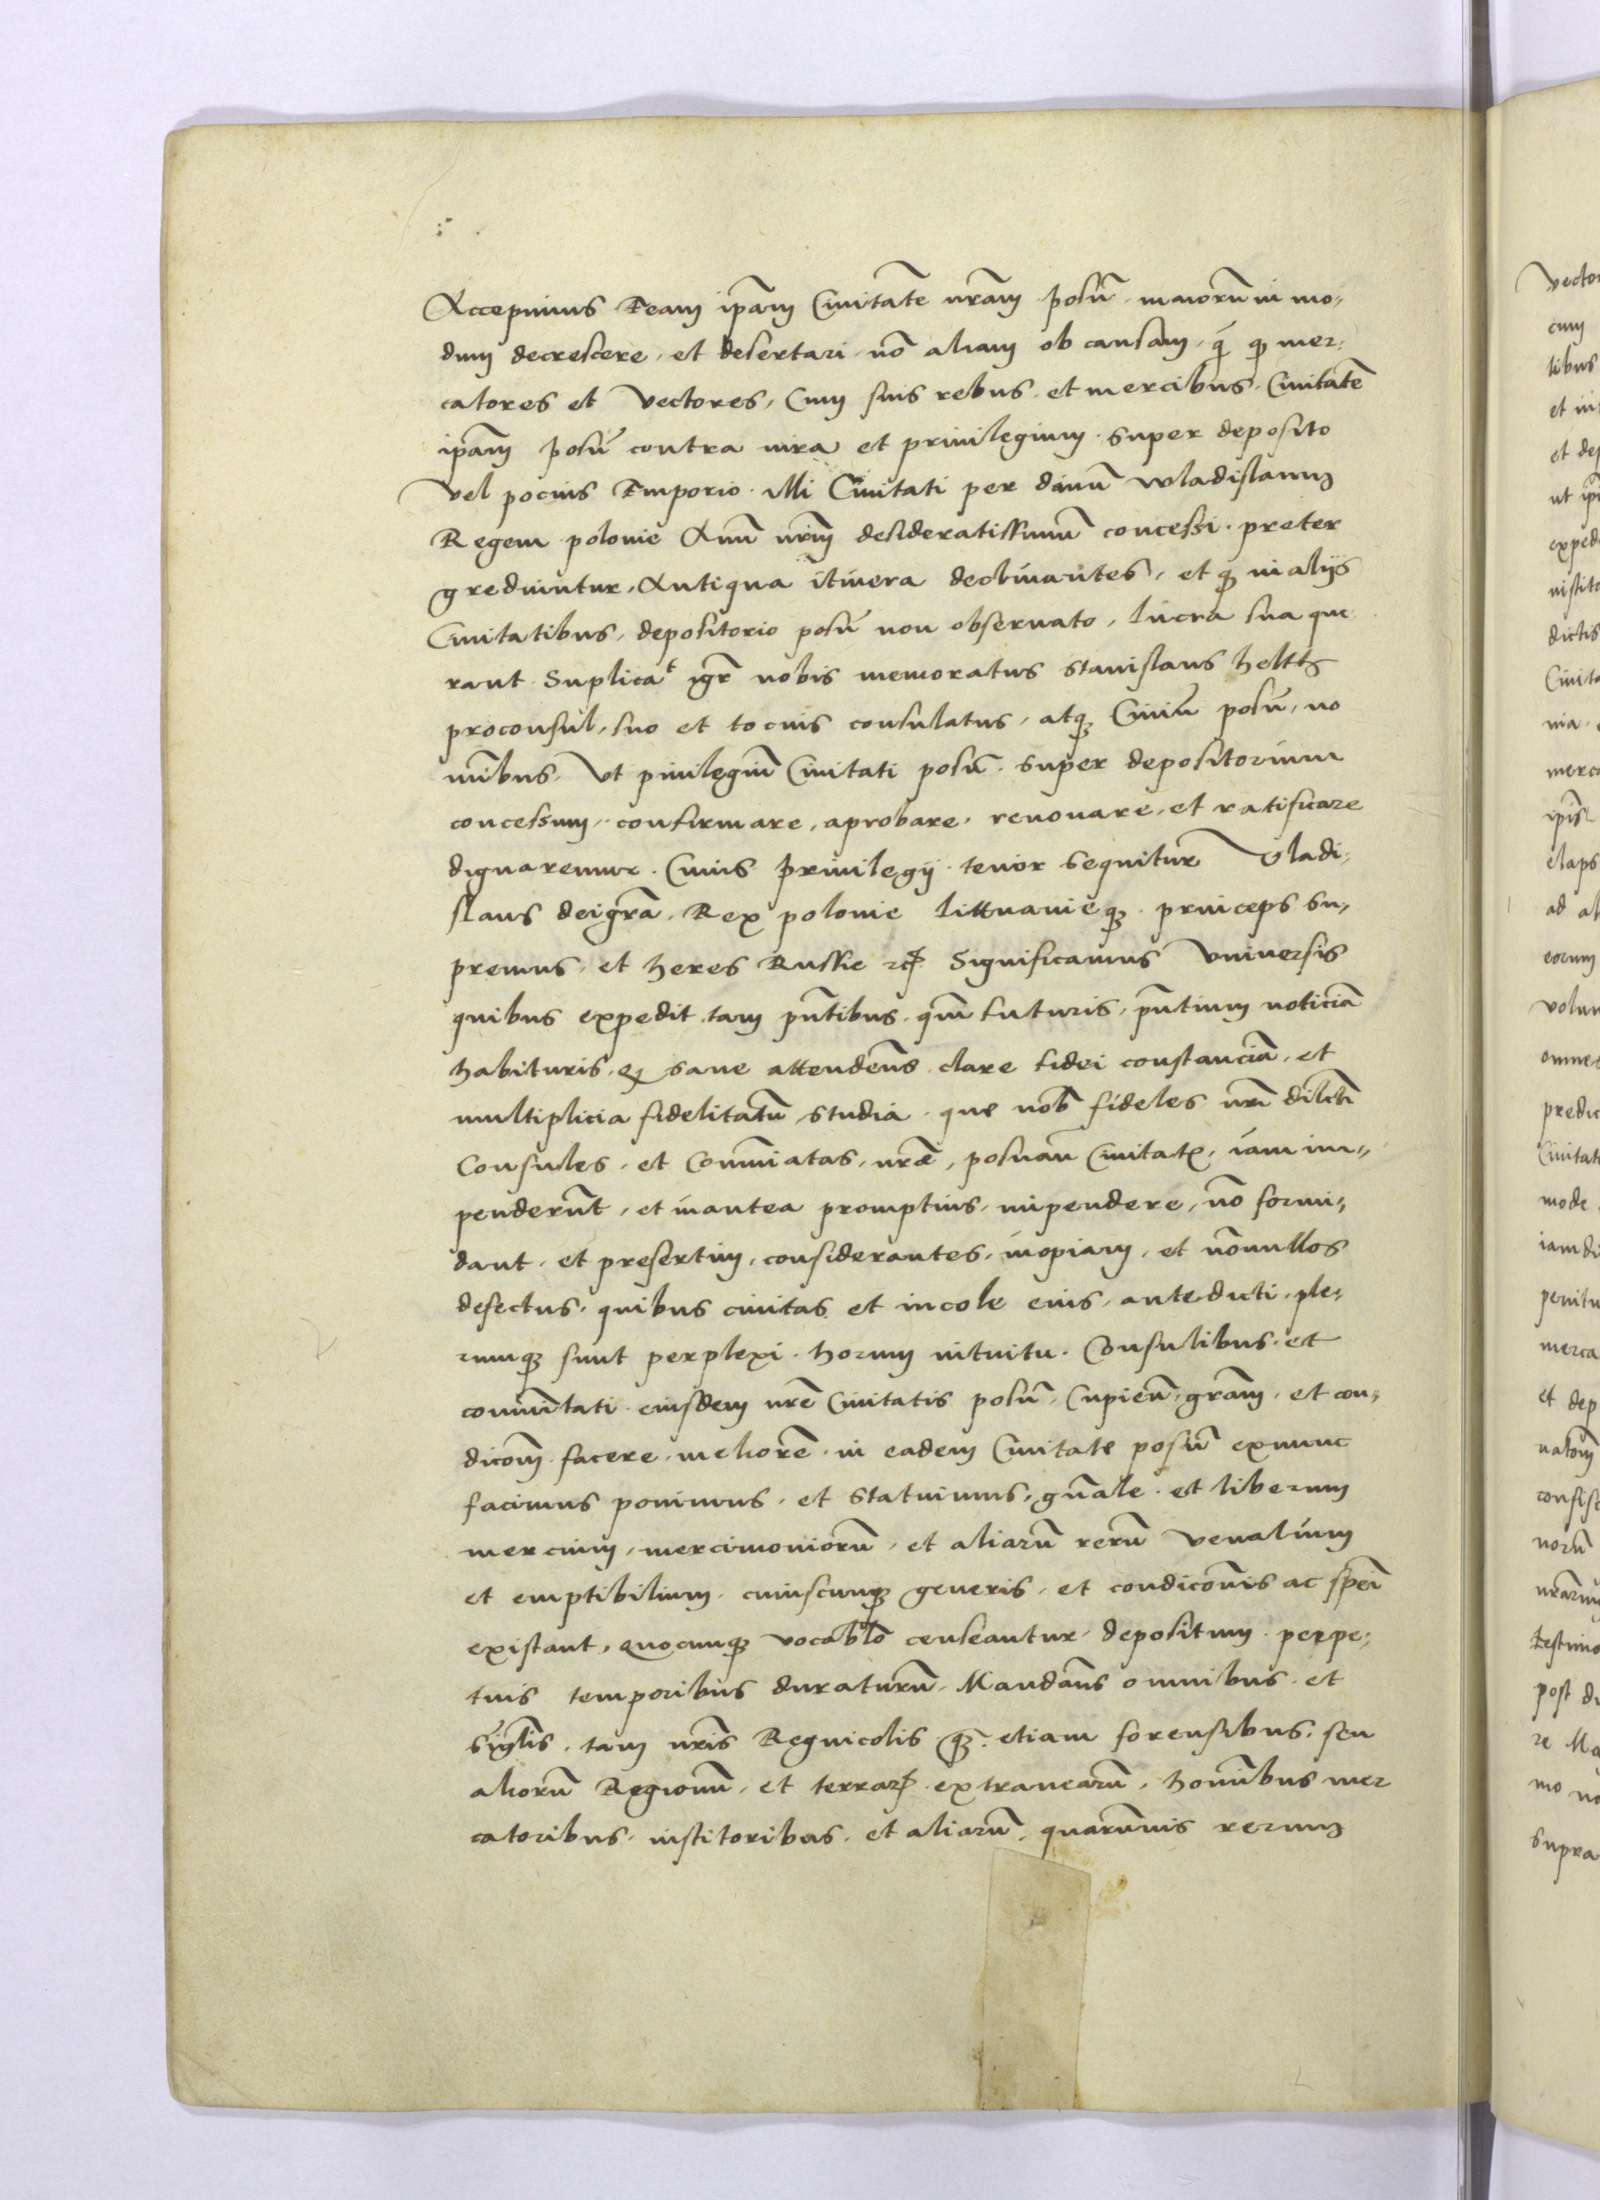 Accepimus Eeam ipãm Ciuitatẽ nrãm posñ. maiorũ in mo,
dum decrescere, et desertari, nõ aliam ob causam, q̃ꝫ qꝫ mer,
catores et Vectores, Cum suis rebus et mercibus. Ciuitatẽ
ipãm posñ contra iura et priuilegium super deposito
Vel pocius Emporio. illi Ciuitati per diuũ wladislaum
Regem polonie Auũ nrm̃ desideratissimũ concessi. preter
grediuntur, Antiqua itinera declinantes, et qꝫ in alijs
Ciuitatibus, depositorio posñ non obseruato, lucra sua que
rant. Suplicaᵗ igr̃ nobis memoratus Stanislaus heltth
proconsul, suo et tocius consulatus, atqꝫ Ciuiũ posñ, no
mĩbus, Vt priuilegiũ Ciuitati posñ. super depositorium
concessum, confirmare, aprobare, renouare, et ratificare
dignaremur. Cuius priuilegij tenor sequitur Vladi,
slaus deigrã. Rex polonie littuanieqꝫ princeps su,
premus, et heres Russie ꝛc̃ Significamus Vniuersis
quibus expedit tam pñtibus. qm̃ futuris, pñtium noticiã
habituris. qꝫ sane attendeñs clare fidei constanciã, et
multiplicia fidelitatũ studia. que nob̃ fideles nrĩ dilcti
Consules, et Com̃itas, nrẽ, posnañ Ciuitatꝭ, iam im,,
penderũt, et inantea promptius, impendere, nõ formi,
dant. et presertim, considerantes, inopiam, et nõnullos
defectus, quibus ciuitas et incole eius, antedicti, ple,
rumqꝫ sunt perplexi. horum intuitu. Consulibus et
com̃itati eiusdem nrẽ Ciuitatis posñ, Cupien̄, grãm, et con,
dicõm facere meliorẽ in eadem Ciuitate posñ exnunc
facimus ponimus, et statuimus, gñale et liberum
mercium, mercimoniorũ, et aliarũ rerũ venalium
et emptibilium cuiuscunqꝫ generis, et condicõnis ac spẽi
existant, quocunqꝫ vocablo censeantur, depositum perpe,
tuis temporibus duraturũ. Mandañs omnibus et
siglis, tam nrĩs Regnicolis qꝫ etiam forensibus, seu
aliorũ Regionũ, et terraꝝ extranearũ, homĩbus mer
catoribus, institoribus, et aliarũ, quarũuis rerum